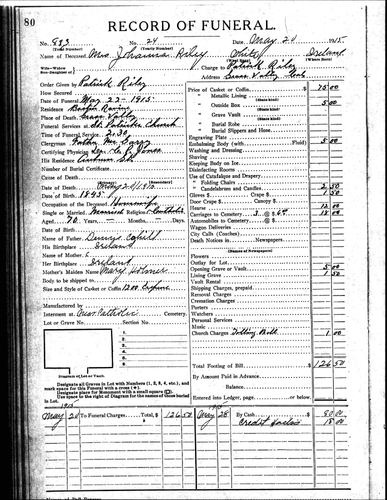 80
RECORD OF FUNERAL.
No. 893 No. 24 Date, May 20 1915
(Total Number) (Yearly Number)
Name of Deceased Mrs Johanna Riley White Ireland
(Where Born)
Charge to Patrick Riley
Address Grass Valley
Order Given by Patrick Riley
How Secured
Date of Funeral May 22 - 1915
Residence
Place of Death Grass Valley
Funeral Services at St. Patricks Church
Time of Funeral Service 2:30
Clergyman Father
Certifying Physician C. P. Jones
His Residence Auburn St
Number of Burial Certificate
Cause of Death
Date of Death May 20 1915
Date of Birth 1845
Occupation of the Deceased Housewife
Single or Married Married Religion Catholic
Aged 70 Years Months Days
Date of Birth
Name of Father Dennis Cahill
His Birthplace Ireland
Name of Mother
Her Birthplace Ireland
Mother's Maiden Name Mary
Body to be shipped to
Size and Style of Casket or Coffin
Manufactured by
Interment at Catholic Cemetery.
Lot or Grave No. Section No.
Diagram of Lot or Vault.
Designate all Graves in Lot with Numbers (1, 2, 3, 4, etc.), and
mark space for this Funeral with a cross (+).
Designate place for Monument with a small square (□).
Use space to the right of Diagram for the names of those buried
in Lot.
Price of Casket or Coffin $ 75 00
" Metallic Lining
" Outside Box 5 00
" Grave Vault
" Burial Robe
" Burial Slippers and Hose
Engraving Plate
Embalming Body (with Fluid) 5 00
Washing and Dressing
Shaving
Keeping Body on Ice
Disinfecting Rooms
Use of Catafalque and Drapery
" Folding Chairs
" Candelabrum and Candles 2 50
Gloves $ Crape $ 1 50
Door Crape $ Canopy $
Hearse 12 00
Carriages to Cemetery 3 @ $6 18 00
Automobiles to Cemetery @ $
Wagon Deliveries
City Calls (Coaches)
Death Notices in Newspapers
(Names of Newspapers)
Flowers
Outlay for Lot
Opening Grave or Vault 5 00
Lining Grave 1 50
Vault Rental
Shipping Charges, prepaid
Removal Charges
Cremation Charges
Porters
Watchers
Personal Services
Music
Church Charges Tolling Bell 1 00
Total Footing of Bill $ 126 50
By Amount Paid in Advance
Balance
Entered into Ledger, page or below.
1915 1915
May 20 To Funeral Charges Total, $ 126 50 May 28 By Cash 80 00
Credit 18 00